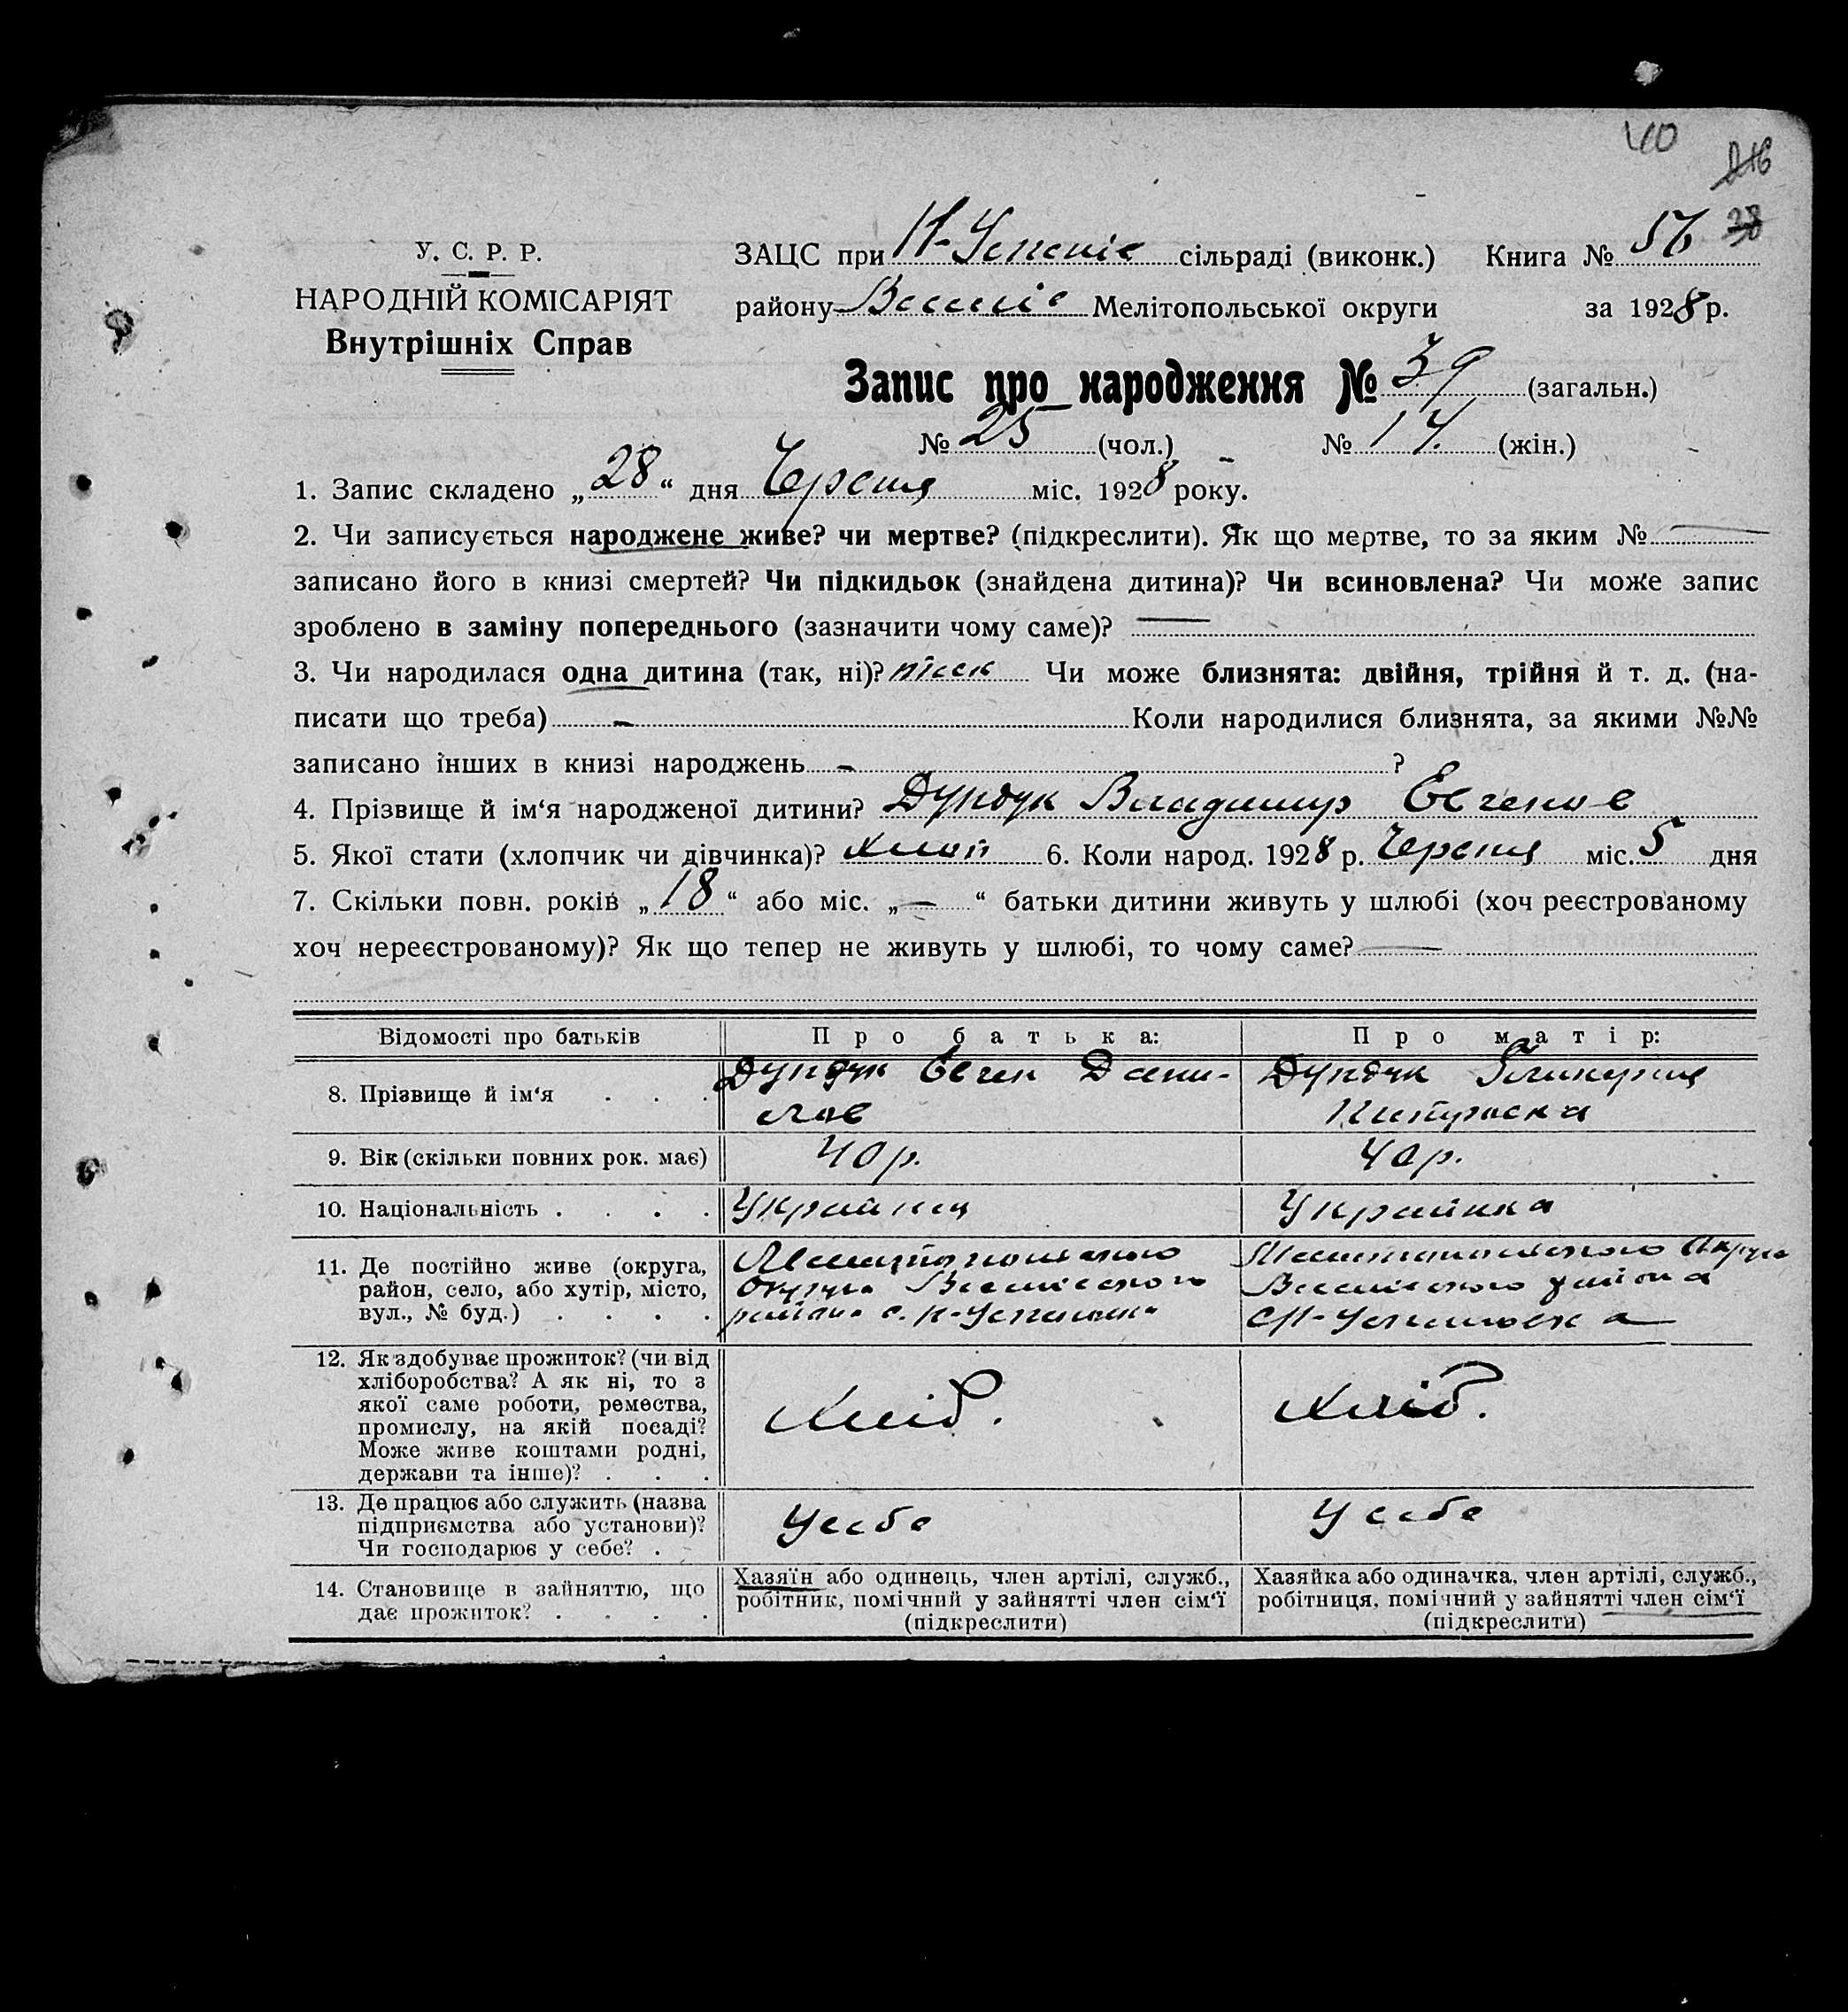 40
У. С. Р. Р.
НАРОДНІЙ КОМІСАРІЯТ
Внутрішніх Справ
ЗАЦС при Н-Успеніє сільраді (виконк.) Книга № 56
району Веселіє Мелітопольської округи за 1928 р.
Запис про народження № 39 (загальн.)
№ 25 (чол.) № 14. (жін.)
1. Запис складено „28“ дня Червня міс. 1928 року.
2. Чи записується народжене живе? чи мертве? (підкреслити). Як що мертве, то за яким № —
записано його в книзі смертей? Чи підкидьок (знайдена дитина)? Чи всиновлена? Чи може запис
зроблено в заміну попереднього (зазначити чому саме)? —
3. Чи народилася одна дитина (так, ні)? так Чи може близнята: двійня, трійня й т. д. (на-
писати що треба) — Коли народилися близнята, за якими №№
записано інших в книзі народжень — ?
4. Прізвище й ім‘я народженої дитини? Дундук Владимир Евгенов
5. Якої стати (хлопчик чи дівчинка)? 6. Коли народ. 1928 р. Червня міс. 5 дня
7. Скільки повн. років „18“ або міс. „—“ батьки дитини живуть у шлюбі (хоч реєстрованому
хоч нереєстрованому)? Як що тепер не живуть у шлюбі, то чому саме? —
Відомості про батьків Про батька: Про матір:
8. Прізвище й ім‘я . . . Дундук Евген Дани-
лов
Дундук Гликерия
Питровна
9. Вік (скільки повних рок. має) 40 р. 40 р.
10. Національність . . . . Украйнец Украйнка
11. Де постійно живе (округа,
район, село, або хутір, місто,
вул., № буд.) . . . .
Мелитопольского
Округа Веселівского
района с. Н-Успеновка
Мелитопольского Округа
Веселівского района
с Н-Успеновка
12. Як здобуває прожиток? (чи від
хліборобства? А як ні, то з
якої саме роботи, ремества,
промислу, на якій посаді?
Може живе коштами родні,
держави та інше)? . . .
Хліб. Хліб.
13. Де працює або служить (назва
підприємства або установи)?
Чи господарює у себе? .
У себе У себе
14. Становище в зайняттю, що
дає прожиток? . . . .
Хазяїн або одинець, член артілі, служб.,
робітник, помічний у зайнятті член сім‘ї
(підкреслити)
Хазяйка або одиначка, член артілі, служб.,
робітниця, помічний у зайнятті член сім‘ї
(підкреслити)